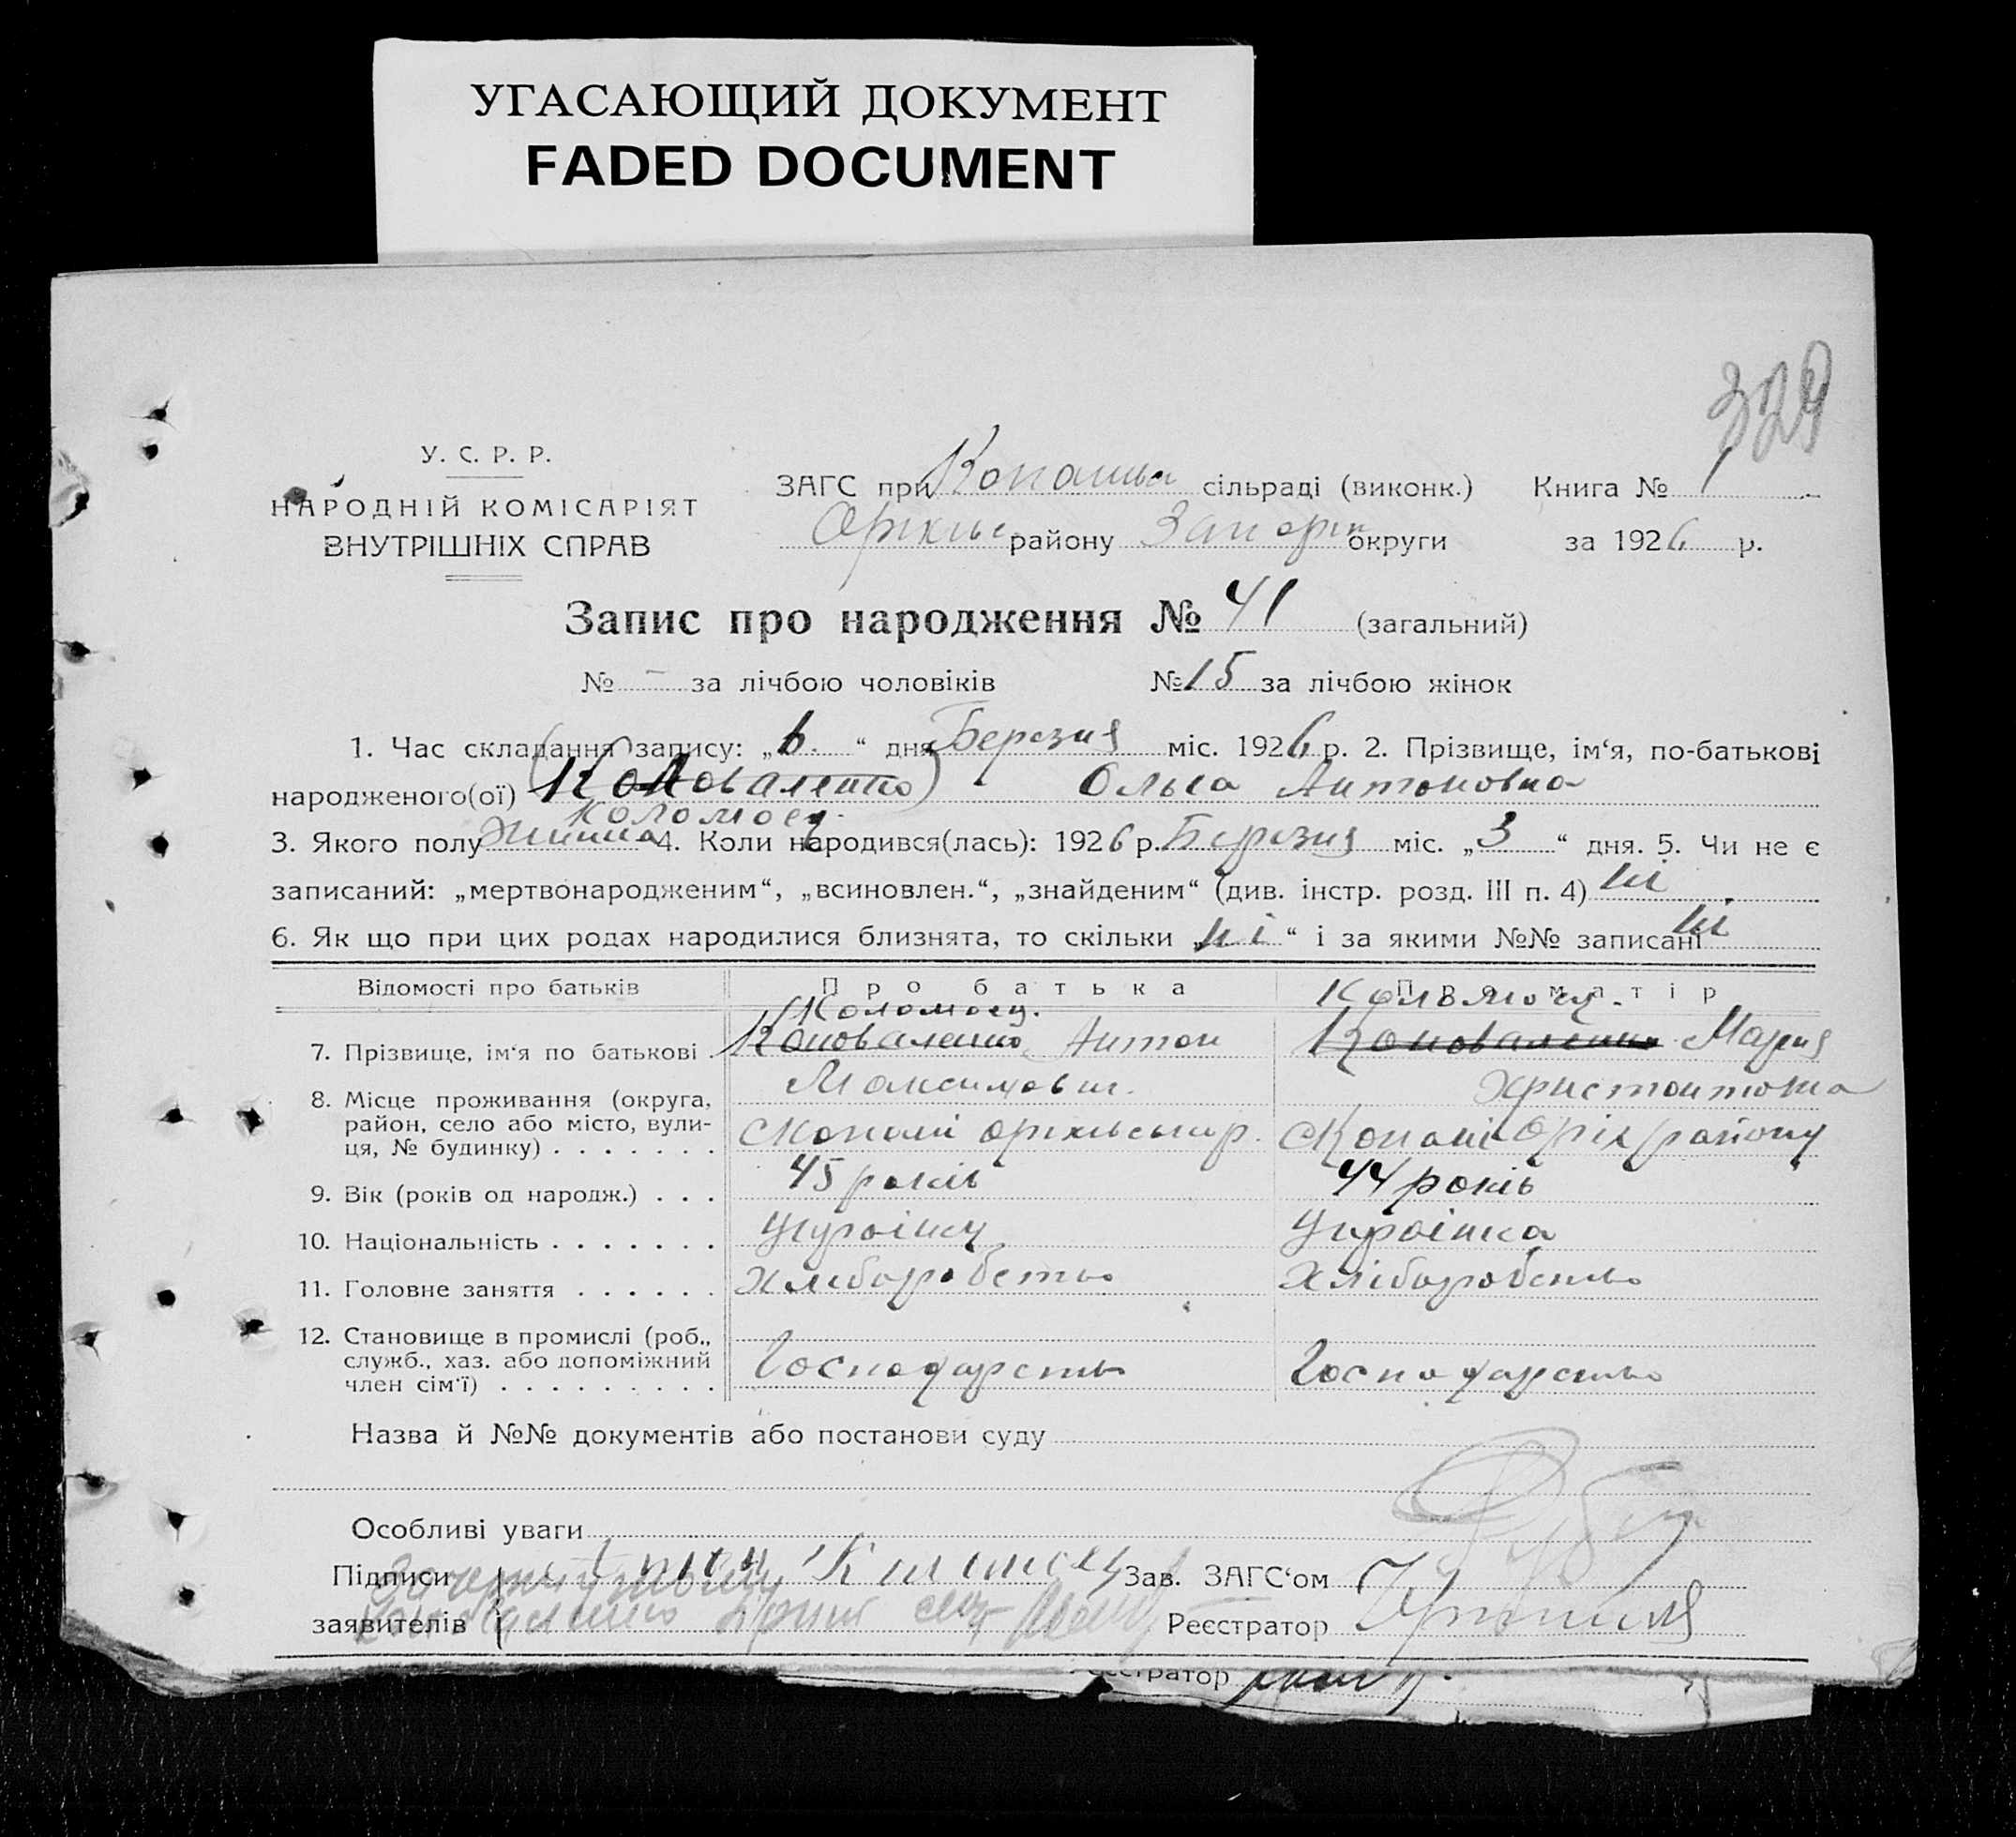 УГАСАЮЩИЙ ДОКУМЕНТ
FADED DOCUMENT
329
У. С. Р. Р.
НАРОДНІЙ КОМІСАРІЯТ
ВНУТРІШНІХ СПРАВ
ЗАГС при сільраді (виконк.) Книга № 1
району Запоріж округи за 1926 р.
Запис про народження № 41 (загальний)
№ - за лічбою чоловіків № 15 за лічбою жінок
1. Час складання запису: „6.“ дня Березня міс. 1926 р. 2. Прізвище, ім‘я, по-батькові
народженого(ої) (Коноваленко) Ольга Антоновна
Коломоец.
3. Якого полу 4. Коли народився(лась): 1926 р. Березня міс. „3“ дня. 5. Чи не є
записаний: „мертвонародженим“, „всиновлен.“, „знайденим“ (див. інстр. розд. III п. 4) ні
6. Як що при цих родах народилися близнята, то скільки „ні“ і за якими №№ записані ні
Відомості про батьків Про батька Про матір
Коломоец.
7. Прізвище, ім‘я по батькові . Коноваленко Антон Коноваленко Мария
Максимович.
8. Місце проживання (округа,
район, село або місто, вули-
ця, № будинку) . . . . . . . с Копані оріхівськ р. с Копані Оріх району
9. Вік (років од народж.) . . . 45 років 44 років
10. Національність . . . . . . . Українц Українка
11. Головне заняття . . . . . . Хліборобство Хліборобство
12. Становище в промислі (роб.,
служб., хаз. або допоміжний
член сім‘ї) . . . . . . . . . . Господарство Господарство
Назва й №№ документів або постанови суду
Особливі уваги
Підписи Зав. ЗАГС‘ом
заявителів Реєстратор
Реєстратор